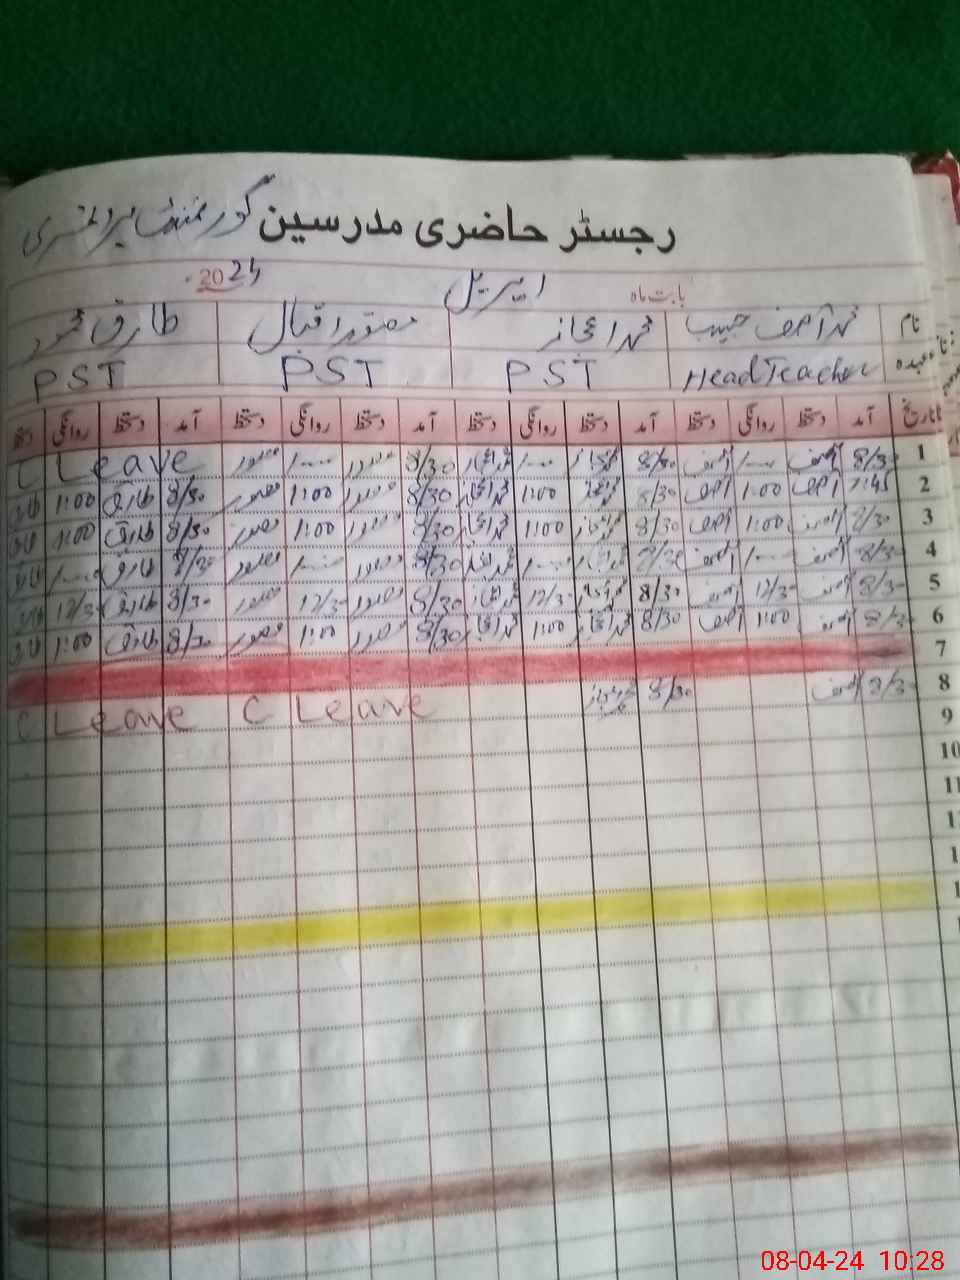 رجسٹر حاضری مدرسین گورنمنٹ پرائمری
بابت ماہ اپریل 2024
نام محمد آصف حبیب محمد اعجاز منصور اقبال طارق محمود
عہدہ Head Teacher PST PST PST
تاریخ آمد دستخط روانگی دستخط آمد دستخط روانگی دستخط آمد دستخط روانگی دستخط آمد دستخط روانگی دستخط
1 8/30 آصف آصف 8/30 8/30 منصور منصور C Leave
2 7:45 آصف 1:00 آصف 8/30 1:00 محمد اعجاز 8/30 منصور 1:00 منصور 8/30 طارق 1:00 طارق
3 8/30 آصف 1:00 آصف 8/30 1:00 محمد اعجاز 8/30 منصور 1:00 منصور 8/30 طارق 1:00 طارق
4 8/30 آصف آصف 8/30 8/30 منصور منصور 8/30 طارق طارق
5 8/30 آصف 12/30 آصف 8/30 محمد اعجاز 12/30 محمد اعجاز 8/30 منصور 12/30 منصور 8/30 طارق 12/30 طارق
6 8/30 آصف 1:00 آصف 8/30 محمد اعجاز 1:00 محمد اعجاز 8/30 منصور 1:00 منصور 8/30 طارق 1:00 طارق
7
8 8/30 آصف 8/30 C Leave C Leave
9
10
11
08-04-24 10:28